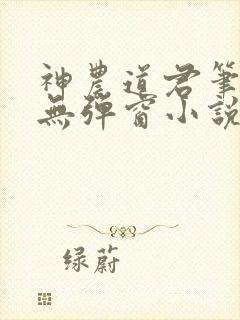 神農道君筆
無彈窗小說
绿蔚